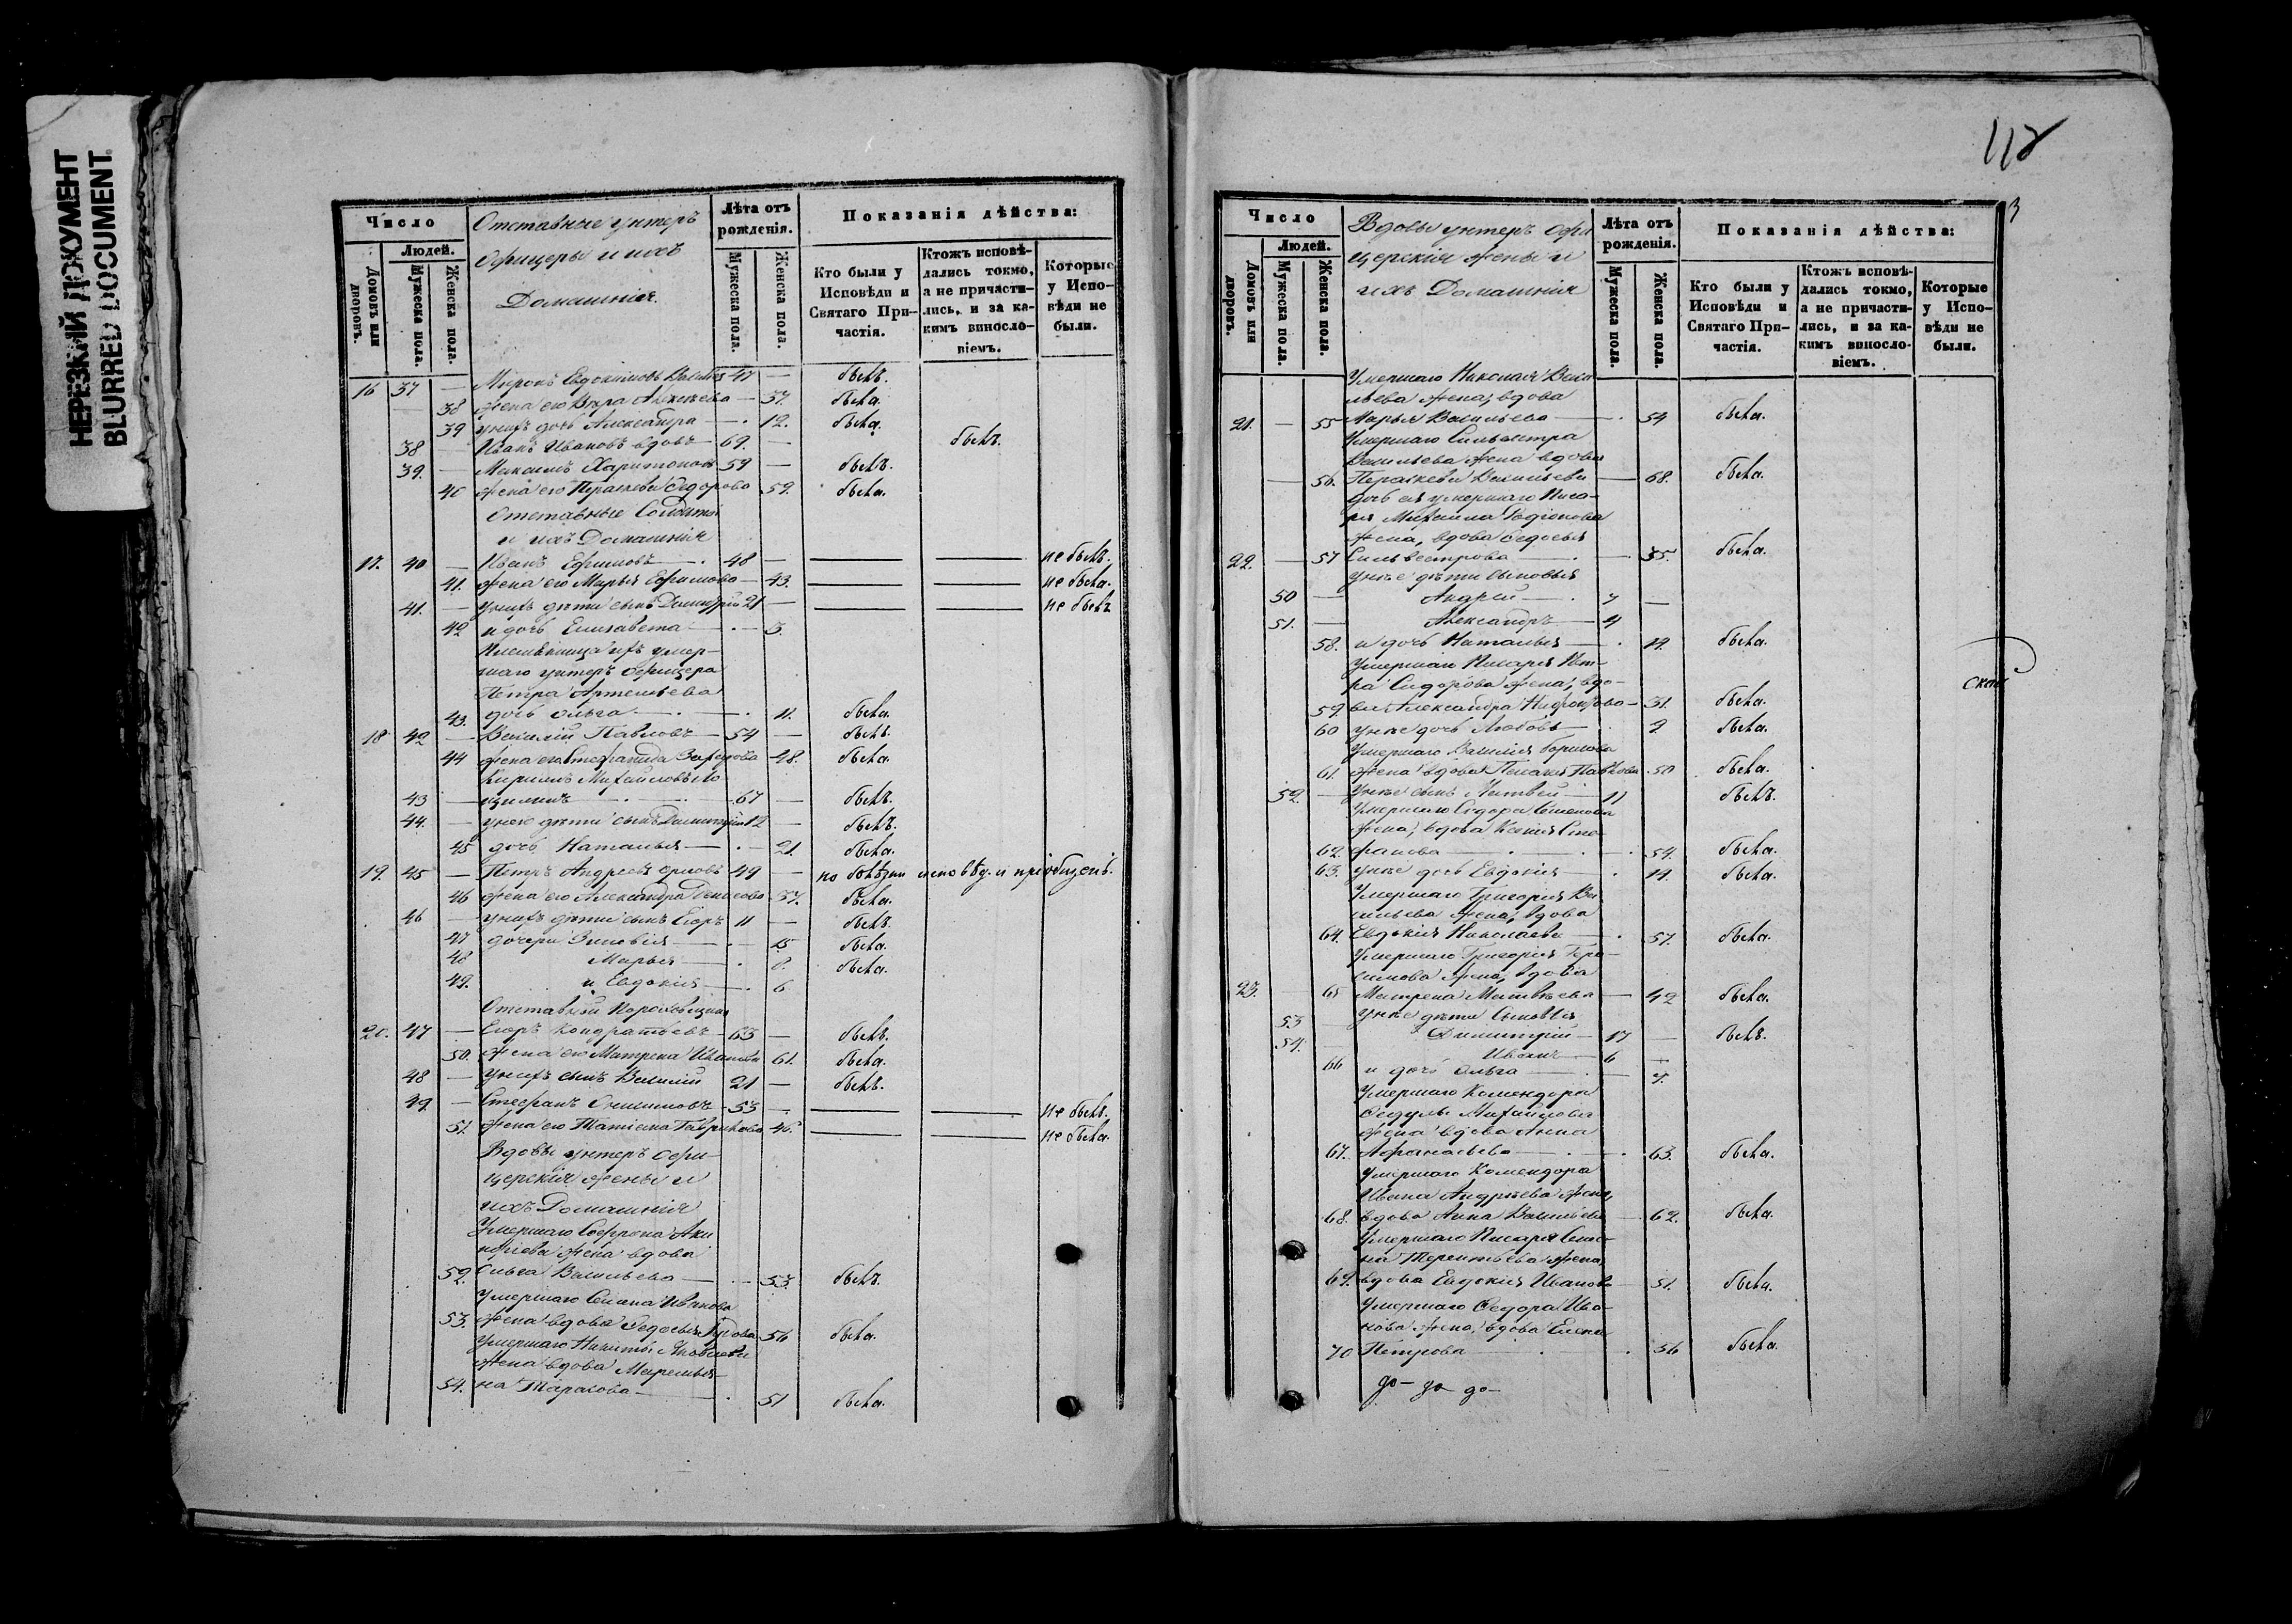 НЕРЕЗКИЙ ДОКУМЕНТ
BLURRED DOCUMENT
Число
Домовъ или дворовъ.
Людей.
Мужеска пола.
Женска пола.
Отставные унтеръ
офицеры и ихъ
Домашнія.
Лѣта отъ рожденія.
Мужеска пола.
Женска пола.
Показанія дѣйства:
Кто были у Исповѣди и Святаго Причастія.
Ктожъ исповѣдались токмо, а не причастились, и за какимъ винословіемъ.
Которые у Исповѣди не были.
16 37 — Миронъ Евдокимовъ 47 — былъ.
38 жена его Вѣра Алексѣева — 37. была.
39 у нихъ дочь Александра — 12. была.
38 — Иванъ Ивановъ вдовъ 69. — былъ.
39. — Максимъ Харитоновъ 59 — былъ.
40 жена его Параскева Ѳедорова 59. была.
Отставные Солдаты
и ихъ Домашнія
17. 40 — Иванъ Ефимовъ 48 — не былъ.
41. жена его Марья Ефимова — 43. не была.
41. — у нихъ дѣти сынъ Димитрій 21 — не былъ
42 и дочь Елизавета — 3.
Племянница ихъ умер-
шаго унтеръ офицера
Петра Артемьева
43. дочь Ольга — 11. была.
18 42 — Василій Павловъ — 54 — былъ.
44 жена его Стефанида 48. была.
Кирилъ Михайловъ
43 — 67 — былъ.
44. — у него дѣти сынъ Димитрій 12 — былъ.
45 дочь Наталья — 21. была.
19. 45 — Петръ Андреевъ Орловъ 49 — по болѣзни исповѣд. и пріобщенъ.
46 жена его Александра Денисова 37. была.
46 — у нихъ дѣти сынъ Егоръ 11 — былъ.
47 дочери Зиновія — 15 была.
48 Марья — 8. была.
49. и Евдокія — 6
Отставной
20. 47 — Егоръ Кондратьевъ 63 — былъ.
50. жена его Матрена Иванова 61. была.
48 — у нихъ сынъ Василій 21 — былъ.
49. — Стефанъ Онисимовъ 53 — не былъ.
51. жена его Татіана Гаврилова 46. не была.
Вдовы унтеръ офи-
церскія жены и
ихъ Домашнія
Умершаго Софрона Аки
нфіева жена вдова
52. Ольга Васильева — 53. былъ.
Умершаго Семена Иванова
53. жена вдова Ѳедосья 56 была.
Умершаго Никиты Яковлева
жена вдова Маремья-
54. на Тарасова — 51 была.
118
3
Число
Домовъ или дворовъ.
Людей.
Мужеска пола.
Женска пола.
Вдовы унтеръ офи
церскія жены и
ихъ Домашнія
Лѣта отъ рожденія.
Мужеска пола.
Женска пола.
Показанія дѣйства:
Кто были у Исповѣди и Святаго Причастія.
Ктожъ исповѣдались токмо, а не причастились, и за какимъ винословіемъ.
Которые у Исповѣди не были.
Умершаго Николая Васи
льева жена, вдова
21. — 55 Марья Васильева — 54 была.
Умершаго Сильвестра
Васильева жена вдова
— 56. Параскева Васильева — 68. была.
дочь ея умершаго Писа-
ря Михаила Родіонова
жена, вдова Ѳедосья
22. — 57 Сильвестрова — 35. была.
у нее дѣти сыновья
50 — Андрей — 7 —
51. — Александръ — 4
58. и дочь Наталья — 14. была.
Умершаго Писаря Пет-
ра Сидорова жена, вдо-
59. ва Александра Никифорова — 31. была.
60 у нее дочь Любовь — 9 была.
Умершаго Василія Борисова
61. жена вдова Пелагія Павлова 50 была.
52. — у нее сынъ Матвей — 11 былъ.
Умершаго Сидора Семенова
жена, вдова Ксенія Сте-
62. фанова — 54. была.
63. у нее дочь Евдокія — 14. была.
Умершаго Григорія Ва
сильева жена, вдова
64. Евдокія Николаева — 57. была.
Умершаго Григорія Гера-
симова жена, вдова
23. — 65 Матрена Матвѣева — 42 была.
у нее дѣти сыновья
53 — Димитрій — 17 — былъ.
54. — Иванъ — 6 —
66 и дочь Ольга — 4.
Умершаго Комендора
Ѳедула Михайлова
жена вдова Анна
67. Афанасьева — 63. была.
Умершаго Комендора
Ивана Андреева жена,
68. вдова Анна Васильева — 62. была.
Умершаго Писаря Семе-
на Терентьева жена
69. вдова Евдокія Иванова 51. была.
Умершаго Ѳедора Ива-
нова жена, вдова Елена
70 Петрова — 56 была.
до- до до-
ской